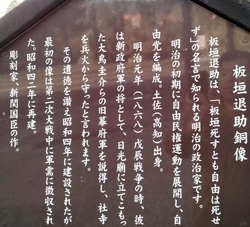 板垣退助銅像
板垣退助は、「板垣死すとも自由は死せ
ず」の名言で知られる明治の政治家です。
明治の初期に自由民権運動を展開し、自
由党を編成。土佐（高知）出身。
明治元年（一八六八）戊辰戦争の時、彼
は新政府軍の将として、日光廟に立てこもっ
た大鳥圭介らの旧幕府軍を説得し、社寺
を兵火から守ったと言われます。
その遺徳を讃え昭和四年に建設されたが
最初の像は第二次大戦中に軍需に徴収され
た。昭和四二年に再建。
彫刻家、新関国臣の作。